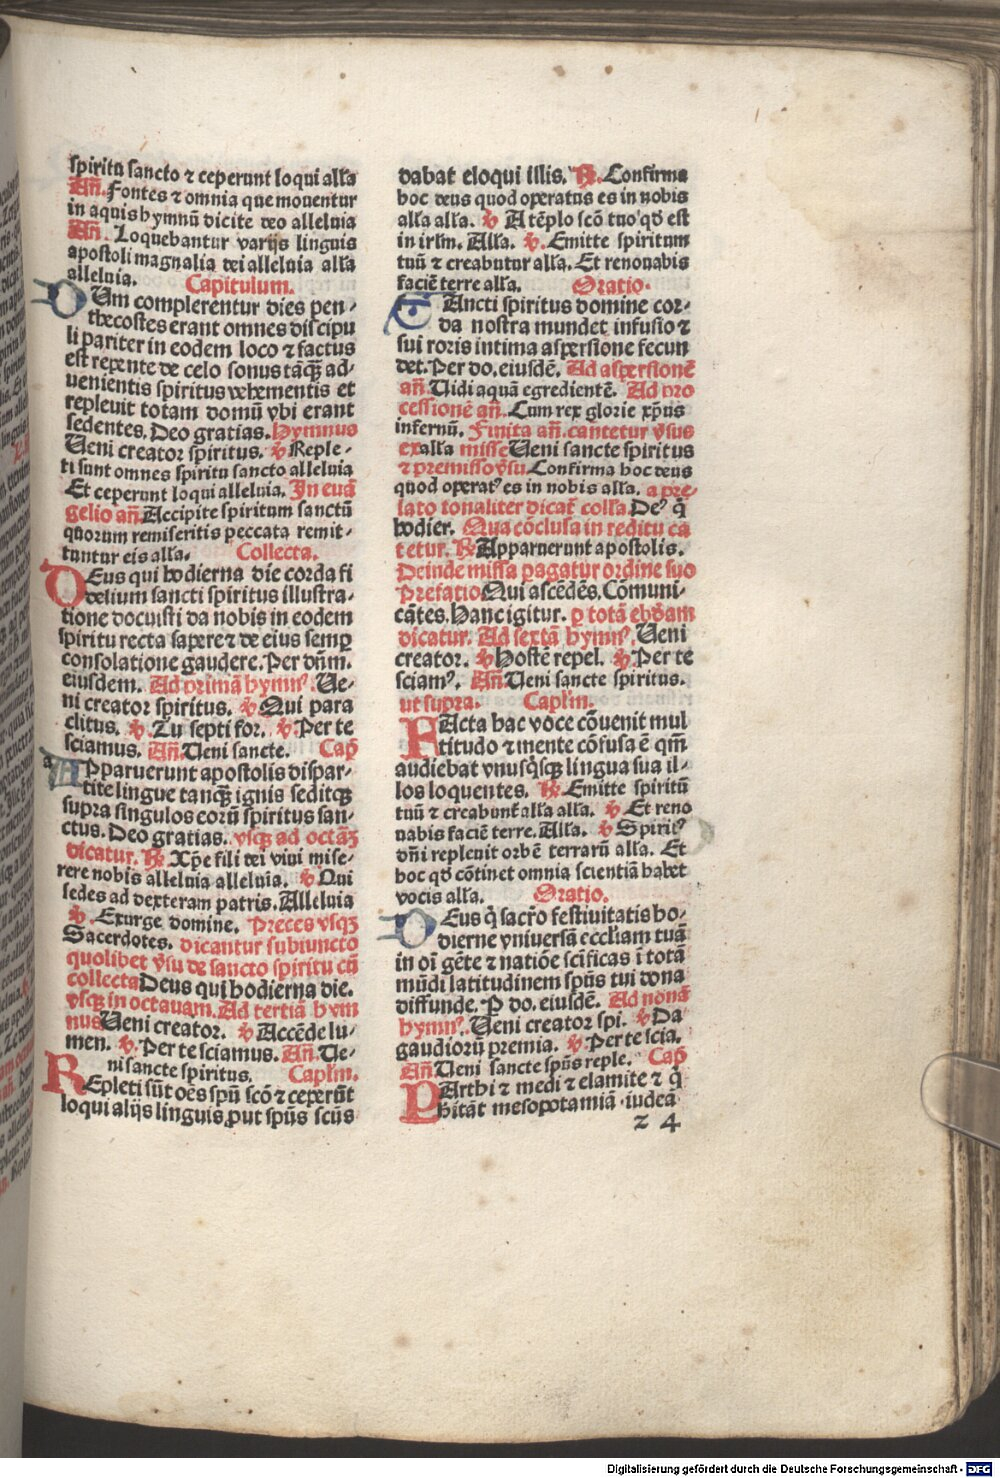 spiritu sancto ⁊ ceperunt loqui alľa
Añ. Fontes ⁊ omnia que mouentur
in aquis hymnū dicite deo alleluia
Añ. Loquebantur varijs linguis
apostoli magnalia dei alleluia alľa
alleluia. Capitulum.
DUm complerentur dies pen-
thecostes erant omnes discipu
li pariter in eodem loco ⁊ factus
est repente de celo sonus tāqȝ ad-
uenientis spiritus vehementis et
repleuit totam domū vbi erant
sedentes. Deo gratias. Hymnus
Ueni creator spiritus. ℣ Reple-
ti sunt omnes spiritu sancto alleluia
Et ceperunt loqui alleluia. In euā
gelio añ. Accipite spiritum sanctū
quorum remiseritis peccata remit-
tuntur eis alľa. Collecta.
DEus qui hodierna die corda fi
delium sancti spiritus illustra-
tione docuisti da nobis in eodem
spiritu recta sapere ⁊ de eius semꝑ
consolatione gaudere. Per dñm.
eiusdem. Ad primā hymnꝰ. Ue-
ni creator spiritus. ℣ Qui para
clitus. ℣. Tu septi for. ℣. Per te
sciamus. Añ. Ueni sancte. Cap̄
APparuerunt apostolis dispar-
tite lingue tanqȝ ignis seditqȝ
supra singulos eorū spiritus san-
ctus. Deo gratias. vsqȝ ad octāȝ
dicatur. ℟ Xp̄e fili dei viui mise-
rere nobis alleluia alleluia. ℣ Qui
sedes ad dexteram patris. Alleluia
℣. Exurge domine. Preces vsqȝ
Sacerdotes. dicantur subiuncto
quolibet v̓su de sancto spiritu cū
collecta Deus qui hodierna die.
vsqȝ in octauam. Ad tertiā hym
nus Ueni creator. ℣ Accēde lu-
men. ℣. Per te sciamus. Añ. Ue-
ni sancte spiritus. Capľm.
REpleti sūt oēs spū scō ⁊ ceperūt
loqui alijs linguis ꝓut spūs scūs
dabat eloqui illis. ℟. Confirma
hoc deus quod operatus es in nobis
alľa alľa. ℣ A tēplo scō tuo qđ est
in irľm. Alľa. ℣. Emitte spiritum
tuū ⁊ creabutur alľa. Et renouabis
faciē terre alľa. Oratio.
SAncti spiritus domine cor-
da nostra mundet infusio ⁊
sui roris intima aspersione fecun
det. Per do. eiusdē. Ad aspersionē
añ. Uidi aquā egredientē. Ad pro
cessionē añ. Cum rex glorie xp̄us
infernū. Finita añ. cantetur v̓sus
ex alľa misse Ueni sancte spiritus
⁊ premisso v̓su Confirma hoc deus
quod operatꝰ es in nobis alľa. a pre-
lato tonaliter dicať colľa. Deꝰ q̄
hodier. Qua cōclusa in reditu cā
tetur. ℟ Apparuerunt apostolis.
Deinde missa ꝑagatur ordine suo
Prefatio Qui ascēdēs. Cōmuni-
cātes. Hanc igitur. ꝑ totā ebđam
dicatur. Ad sextā hymnꝰ. Ueni
creator. ℣ Hostē repel. ℣ Per te
sciamꝰ. Añ. Ueni sancte spiritus.
ut supra. Capľm.
FActa hac voce cōuenit mul
titudo ⁊ mente cōfusa ē qm̄
audiebat vnusq̄sqȝ lingua sua il-
los loquentes. ℟. Emitte spiritū
tuū ⁊ creabunť alľa alľa. ℣ Et reno
uabis faciē terre. Alľa. ℣ Spiritꝰ
dñi repleuit orbē terrarū alľa. Et
hoc qđ cōtinet omnia scientiā habet
vocis alľa. Oratio.
DEus q̄ sacro festiuitatis ho-
dierne vniuersā eccľiam tuā
in oī gēte ⁊ natiōe scificas i totā
mūdi latitudinem spūs tui dona
diffunde. P do. eiusdē. Ad nonā
hymnꝰ. Ueni creator spi. ℣ Da
gaudiorū premia. ℣ Per te scia.
Añ Ueni sancte spūs reple. Cap̄
PArthi ⁊ medi ⁊ elamite ⁊ q̄
hitāt mesopotamiā iudeā
z 4
Digitalisierung gefördert durch die Deutsche Forschungsgemeinschaft - DFG